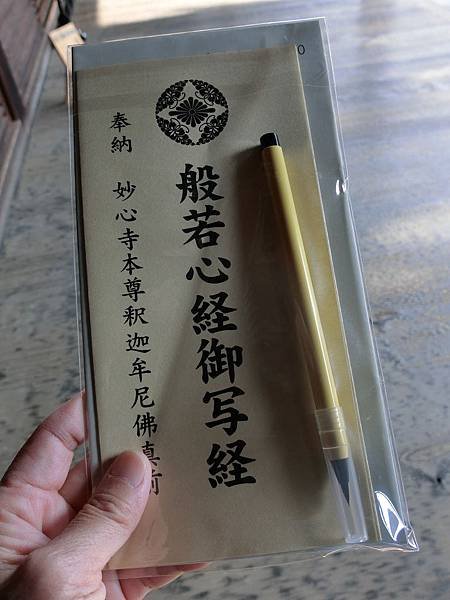 般若心経御写経
奉納 妙心寺本尊釈迦牟尼佛真前